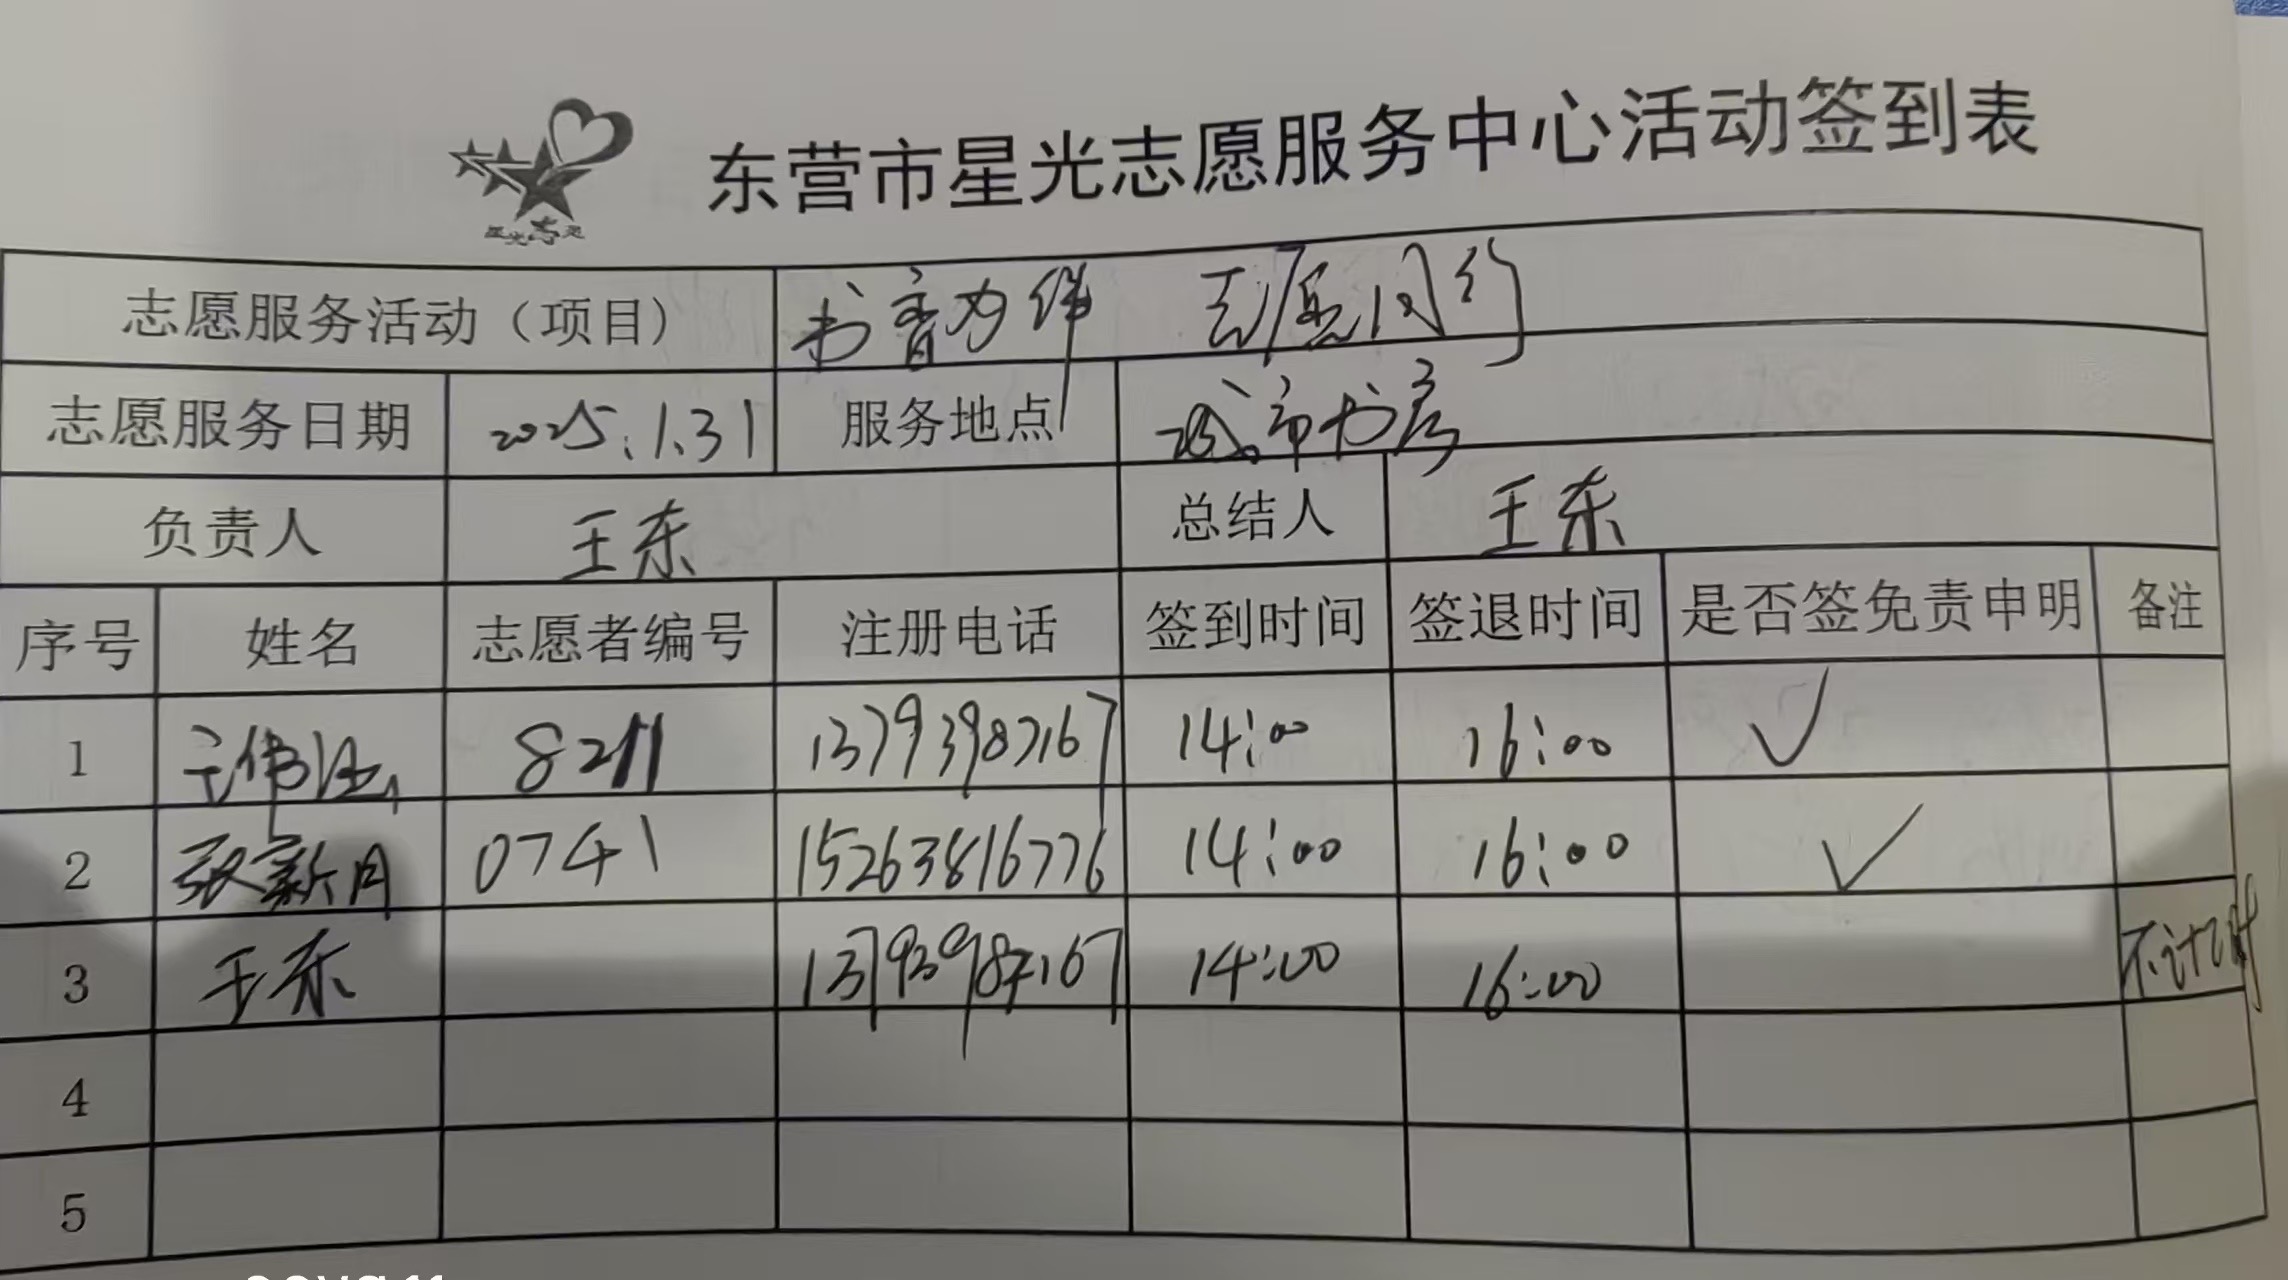 星光志愿
东营市星光志愿服务中心活动签到表
志愿服务活动（项目） 书香为伴 志愿同行
志愿服务日期 2025.1.31 服务地点 城市书房
负责人 王东 总结人 王东
序号 姓名 志愿者编号 注册电话 签到时间 签退时间 是否签免责申明 备注
1 8211 13793987167 14:00 16:00 ✓
2 张新月 0741 15263816776 14:00 16:00 ✓
3 王东 13793987167 14:00 16:00 不计时
4
5